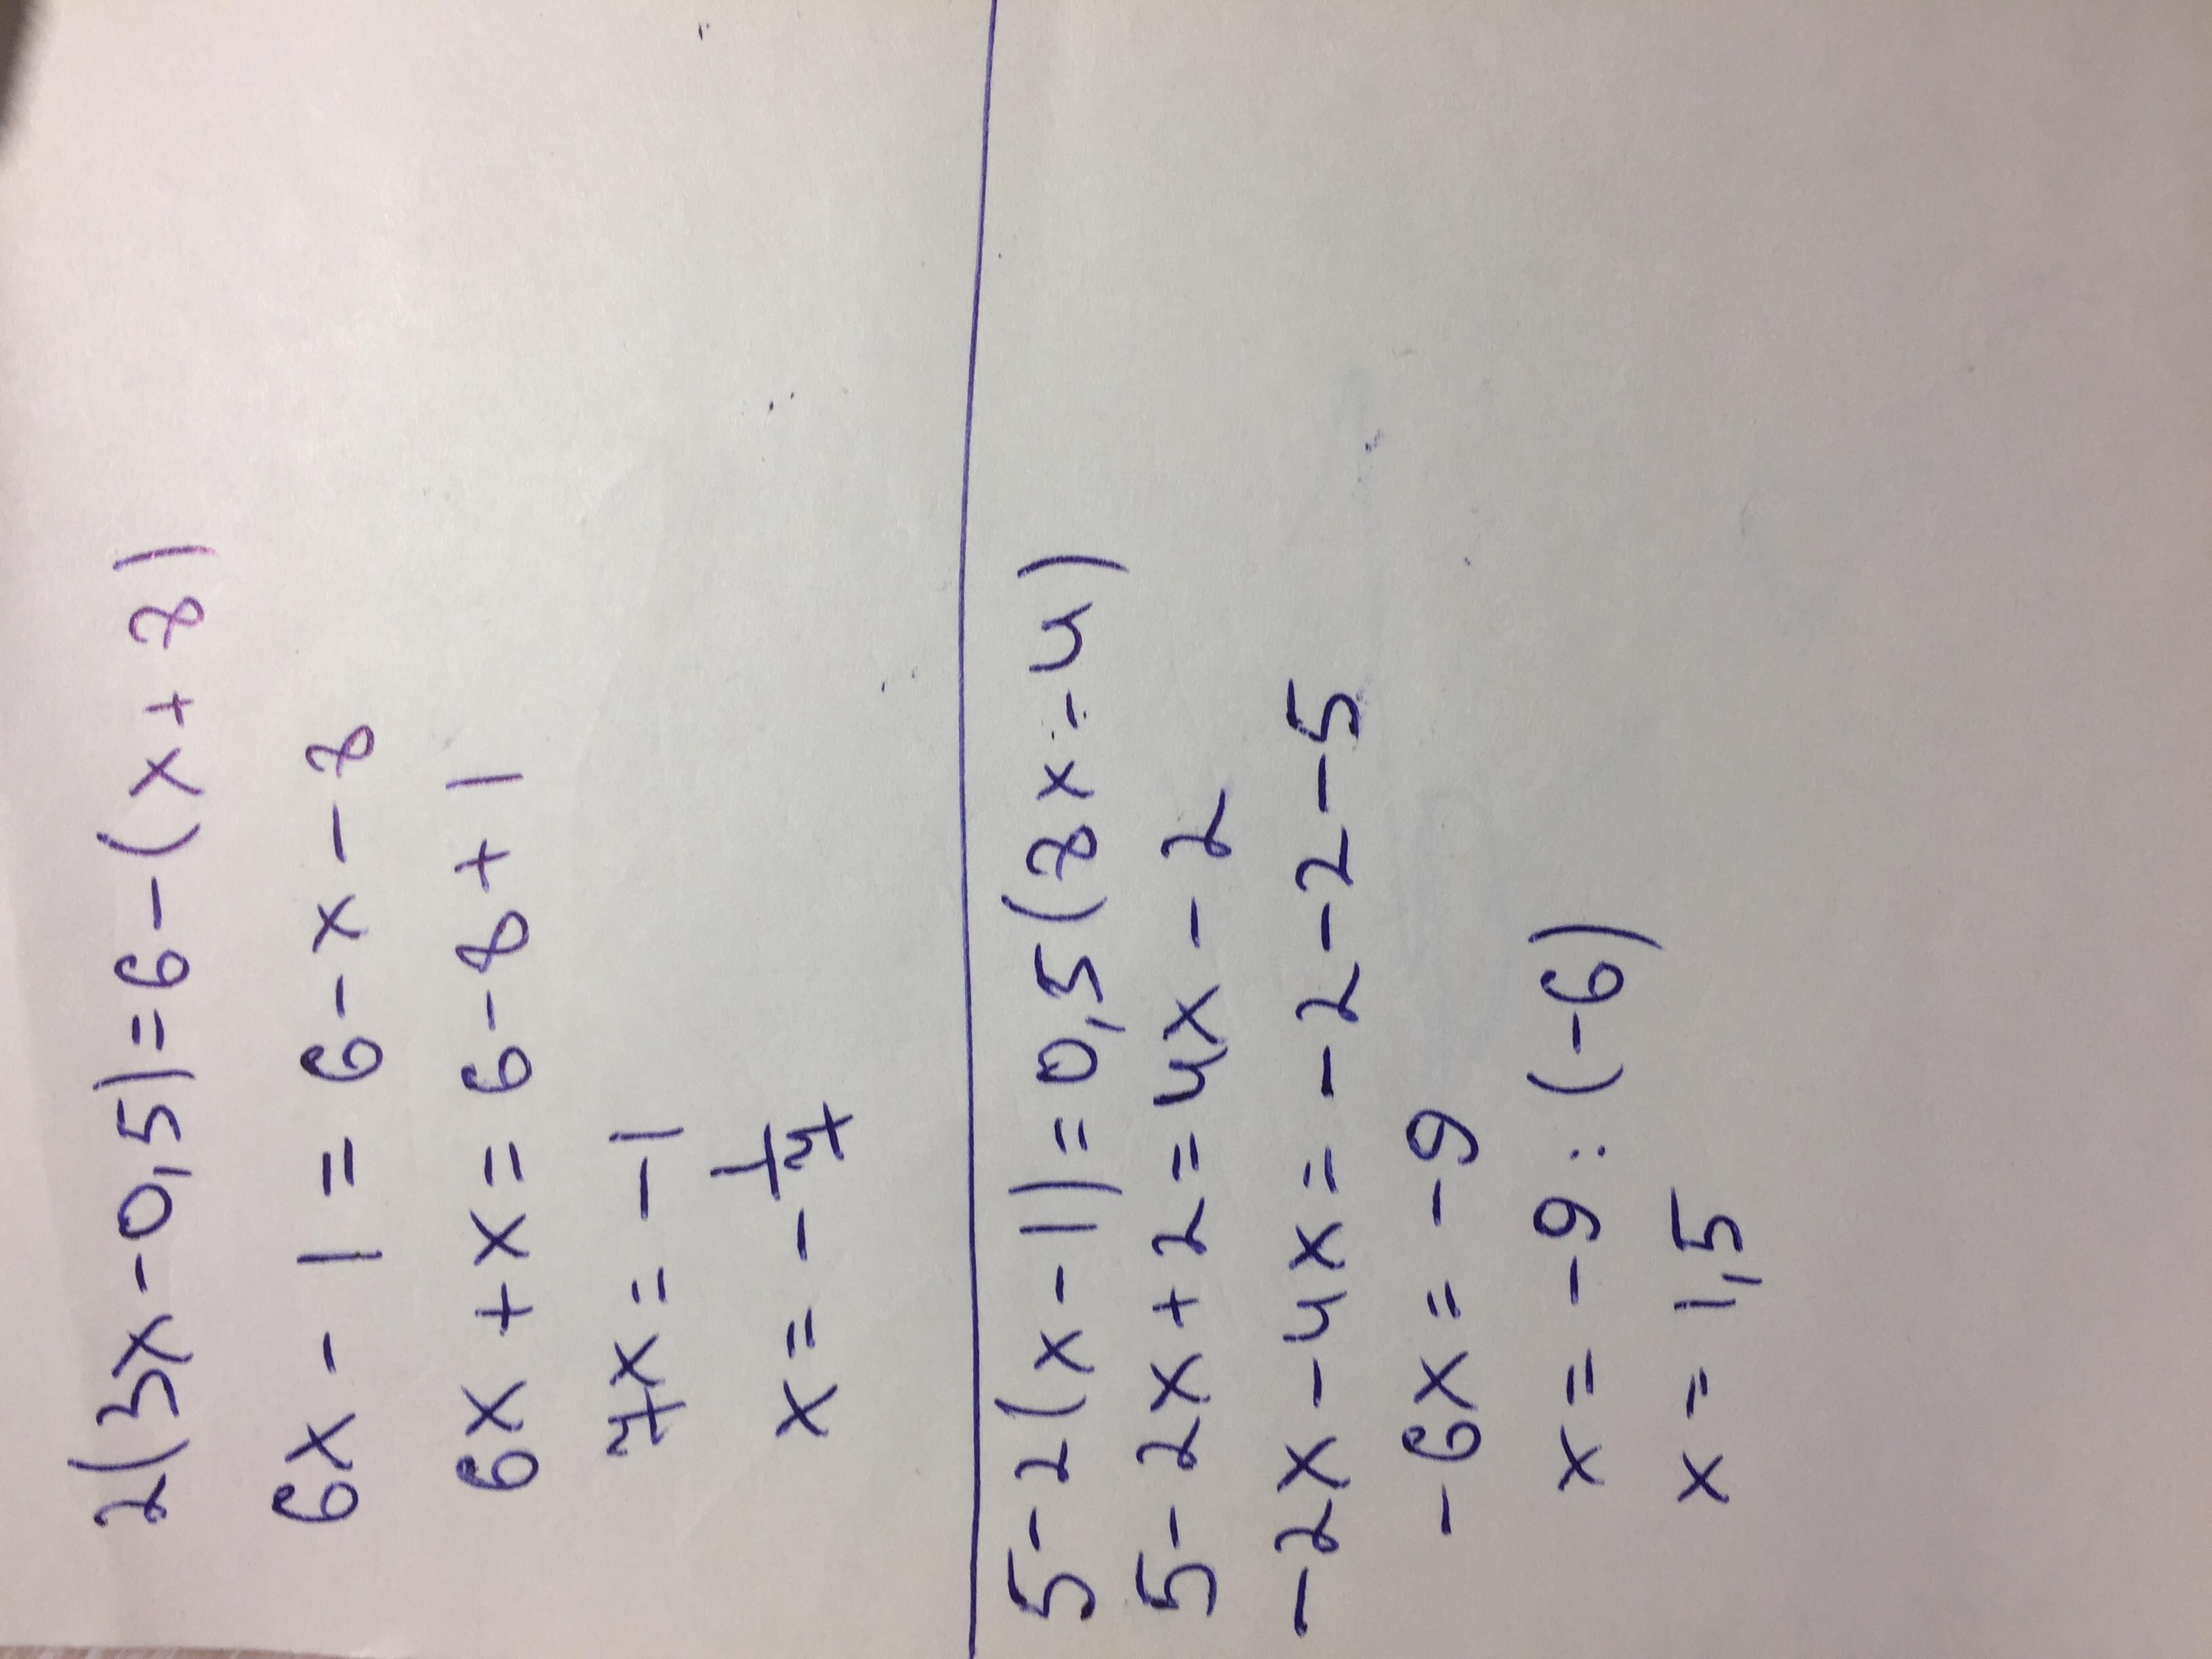 2(3x-0,5)=6-(x+8)
6x-1=6-x-8
6x+x=6-8+1
7x=-1
x=-1/7
5-2(x-1)=0,5(8x-4)
5-2x+2=4x-2
-2x-4x=-2-2-5
-6x=-9
x=-9:(-6)
x=1,5